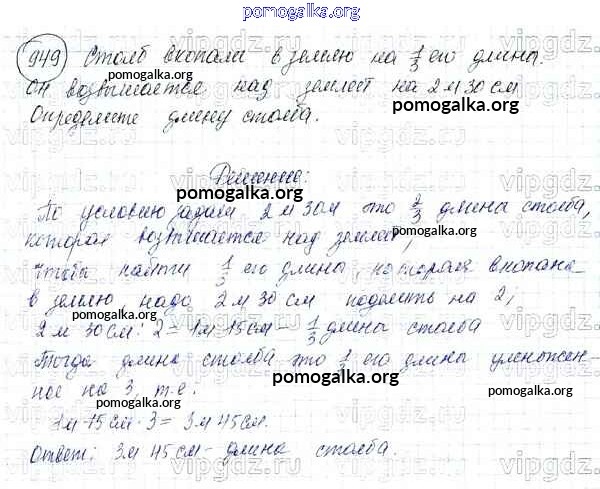 pomogalka.org
949 Столб вкопали в землю на 1/3 его длины.
pomogalka.org
Он возвышается над землей на 2 м 30 см
pomogalka.org
Определите длину столба.
Решение:
pomogalka.org
По условию задачи 2 м 30 м, это 2/3 длины столба,
которая возвышается над землей,
pomogalka.org
Чтобы найти 1/3 его длины, которая вкопана
в землю, надо 2 м 30 см поделить на 2,
pomogalka.org
2 м 30 см : 2 = 1 м 15 см - 1/3 длины столба
Тогда длина столба это 1/3 его длины умножен-
pomogalka.org
ное на 3, т.е.
1м 15 см · 3 = 3 м 45 см.
pomogalka.org
Ответ: 3 м 45 см - длина столба.
pomogalka.org
vipgdz.ru